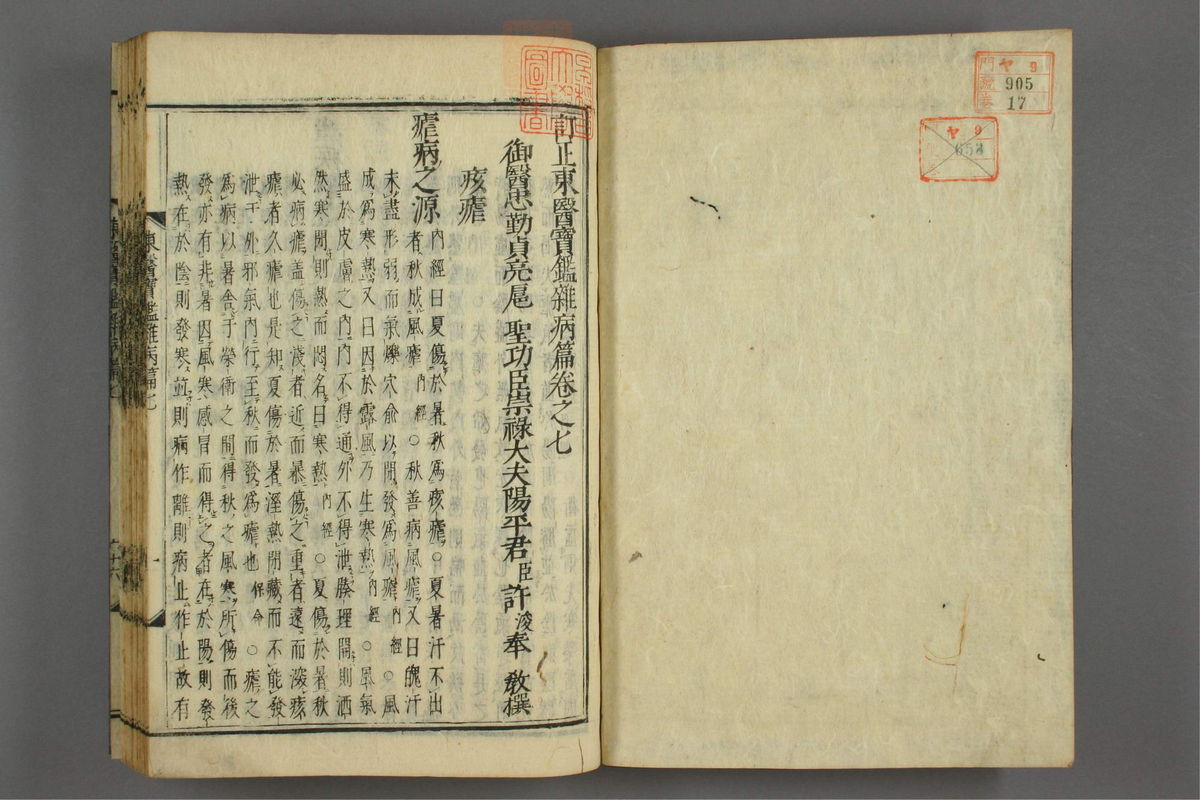 門 ヤ 9
號 905
卷 17
ヤ 9
653
訂正東醫寶鑑雜病篇卷之七
御醫忠勤貞亮扈 聖功臣崇祿大夫陽平君臣許浚奉 敎撰
痎瘧
瘧病之源
內經曰夏傷於暑秋爲痎瘧○夏暑汗不出
者秋成風瘧內經○秋善病風瘧又曰魄汗
未盡形弱而氣爍穴俞以閉發爲風瘧內經○風
成爲寒熱又曰因於露風乃生寒熱內經○風氣
盛於皮膚之內內不得通外不得泄腠理開則洒
然寒閉則熱而悶名曰寒熱內經○夏傷於暑秋
必病瘧盖傷之淺者近而暴傷之重者遠而深痎
瘧者久瘧也是知夏傷於暑溼熱閉藏而不能發
泄于外邪氣內行至秋而發爲瘧也保命○瘧之
爲病以暑舍于榮衛之間得秋之風寒所傷而後
發亦有非暑因風寒感冒而得之者在於陽則發
熱在於陰則發寒並則病作離則病止作止故有
東醫寶鑑雜病篇七
一